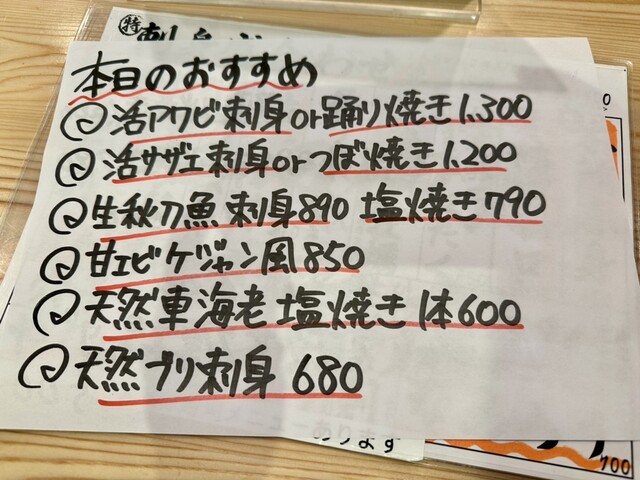 本日のおすすめ
活アワビ刺身or踊り焼き1,300
活サザエ刺身orつぼ焼き1,200
生秋刀魚 刺身890 塩焼き790
甘エビケジャン風850
天然車海老 塩焼き 1本600
天然ブリ刺身 680
あります
700